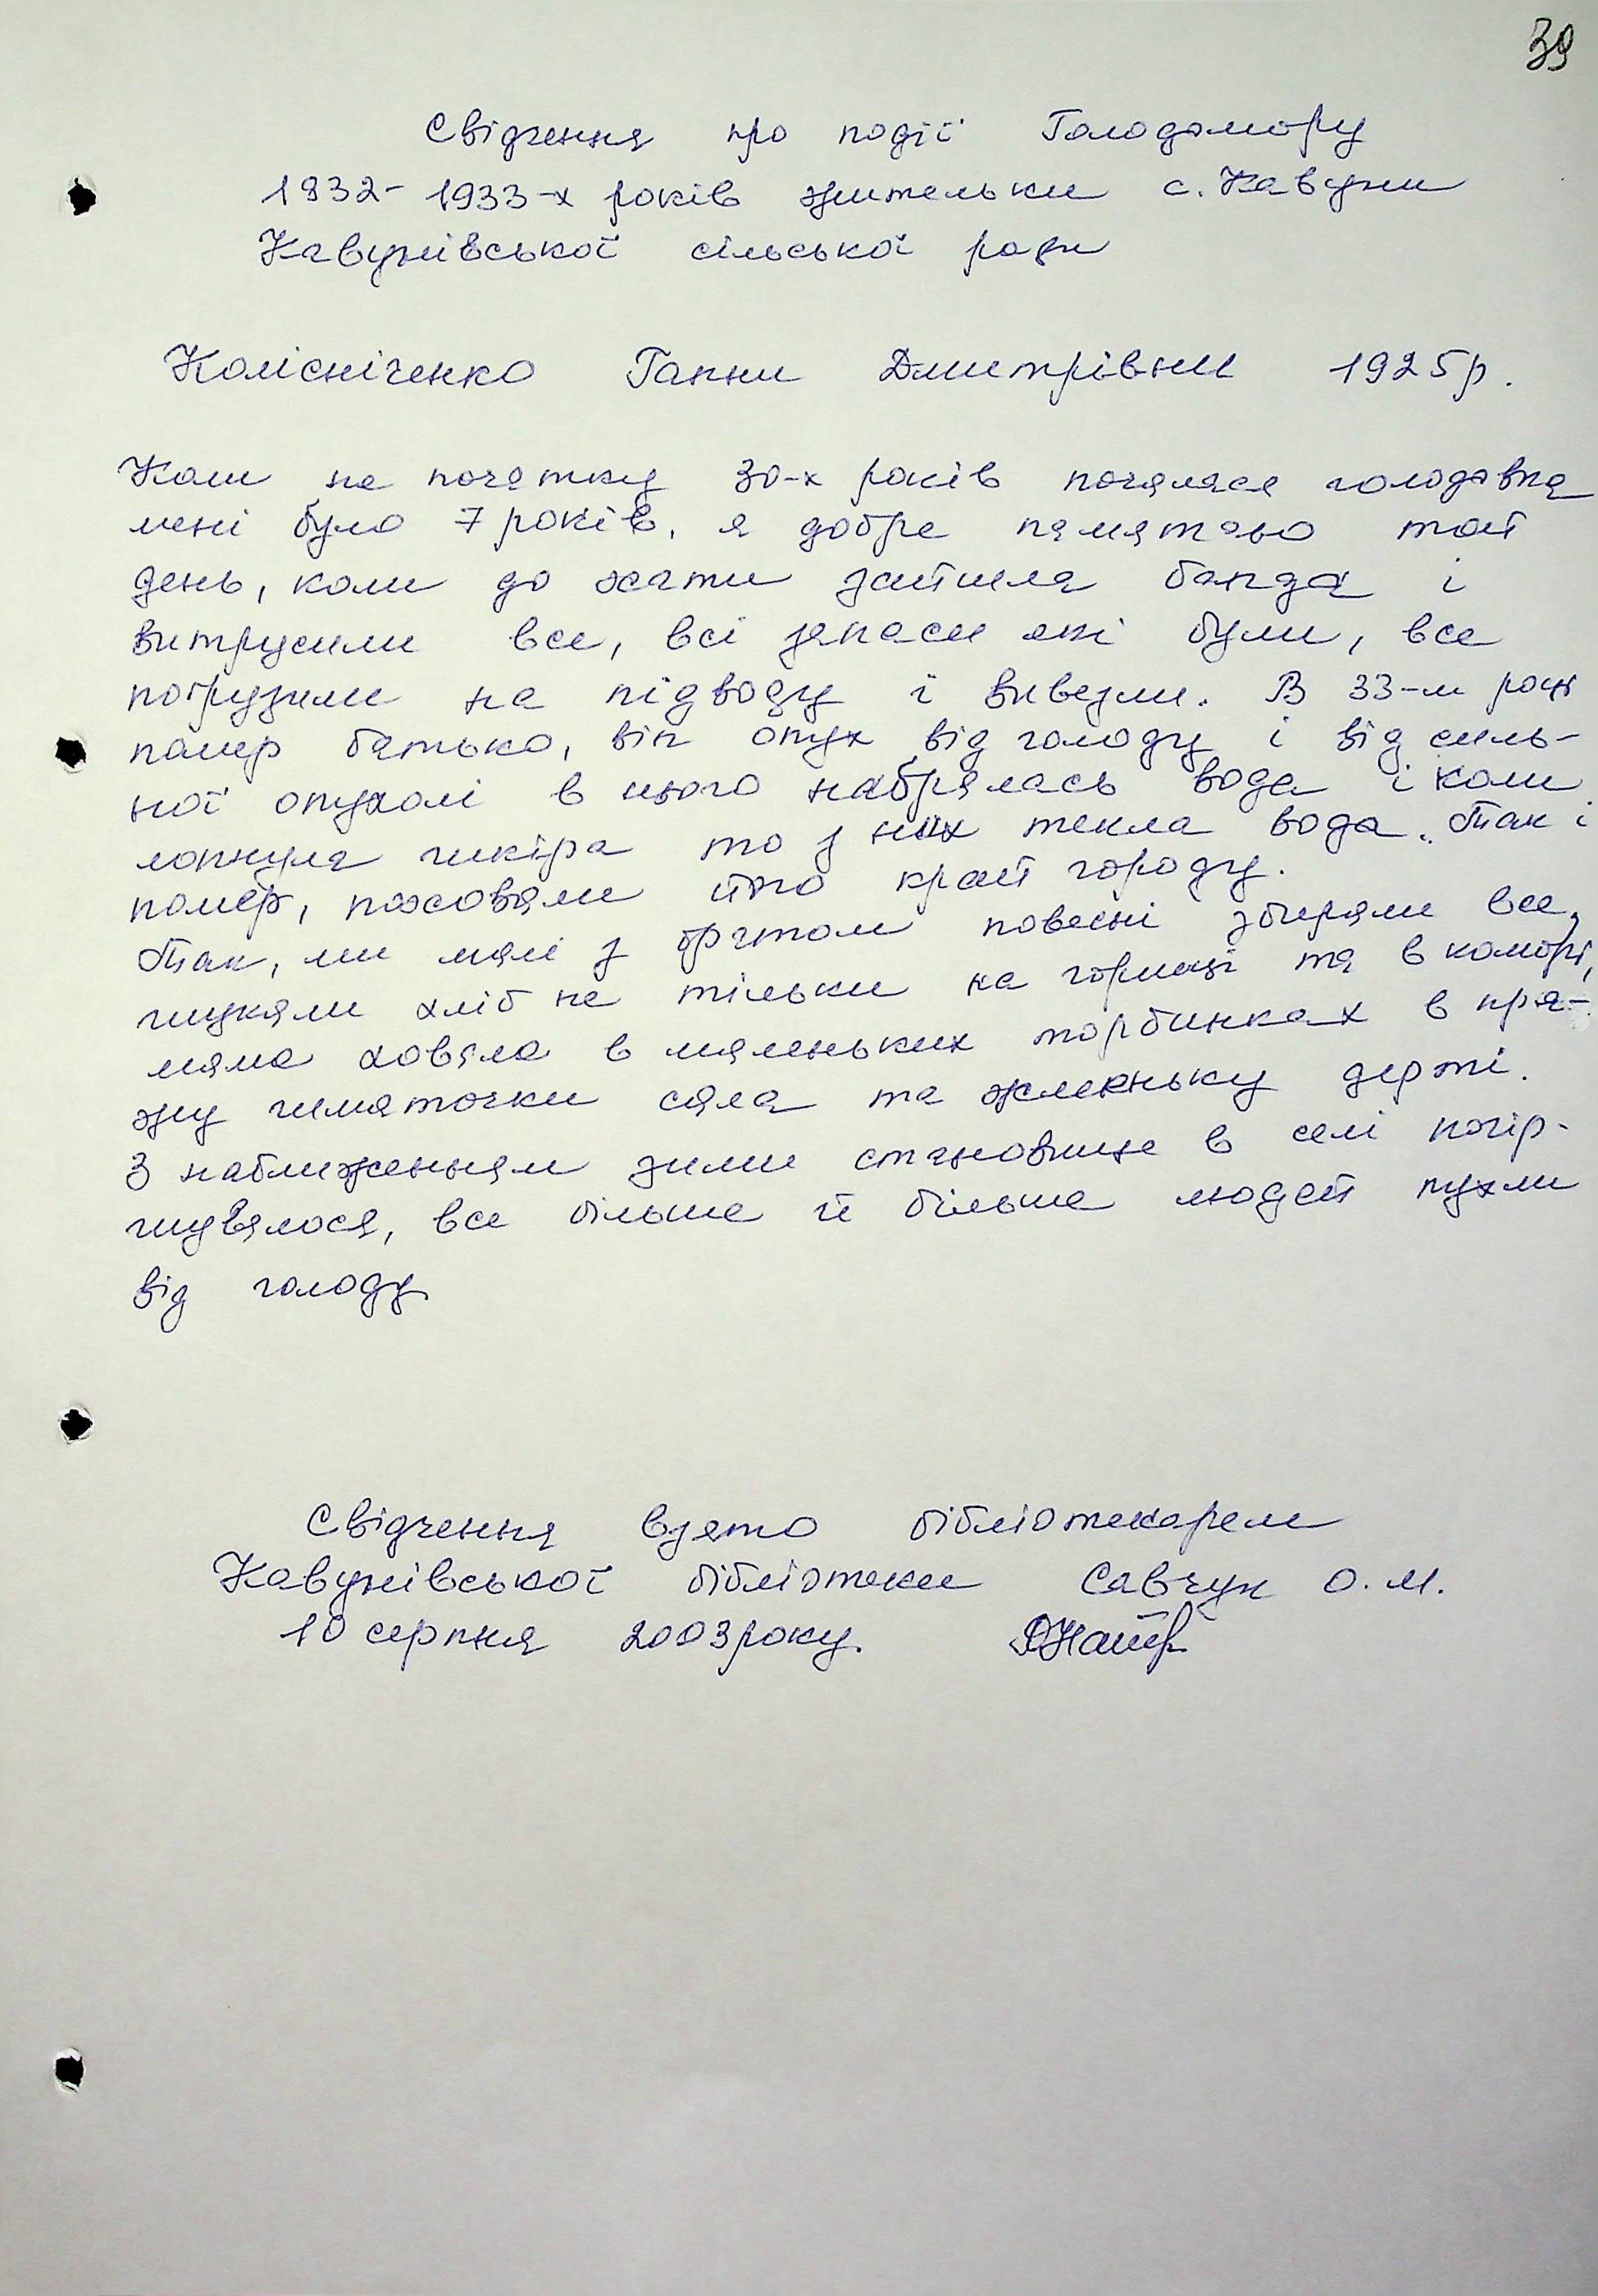 39
Свідчення про події Голодомору
1932-1933-х років жительки с. Кавуни
Кавунівської сільської ради
Колісніченко Ганни Дмитрівни 1925р.
Коли на початку 30-х років почалася голодовка
мені було 7 років, я добре памятаю той
день, коли до хати зайшла банда і
витрусили все, всі запаси які були, все
погрузили на підводу і вивезли. В 33-м році
помер батько, він опух від голоду і від силь-
ної опухолі в нього набралась вода і коли
лопнула шкіра то з них текла вода. Так і
помер, поховали його край городу.
Так, ми малі з братом повесні збирали все,
шукали хліб не тільки на горищі та в коморі,
мама ховала в маленьких торбинках в пря-
жу шматочки сала та жменьку дерті.
З наближенням зими становище в селі погір-
шувалося, все більше й більше людей пухли
від голоду
Свідчення взято бібліотекарем
Кавунівської бібліотеки Савчук О.М.
10 серпня 2003 року.